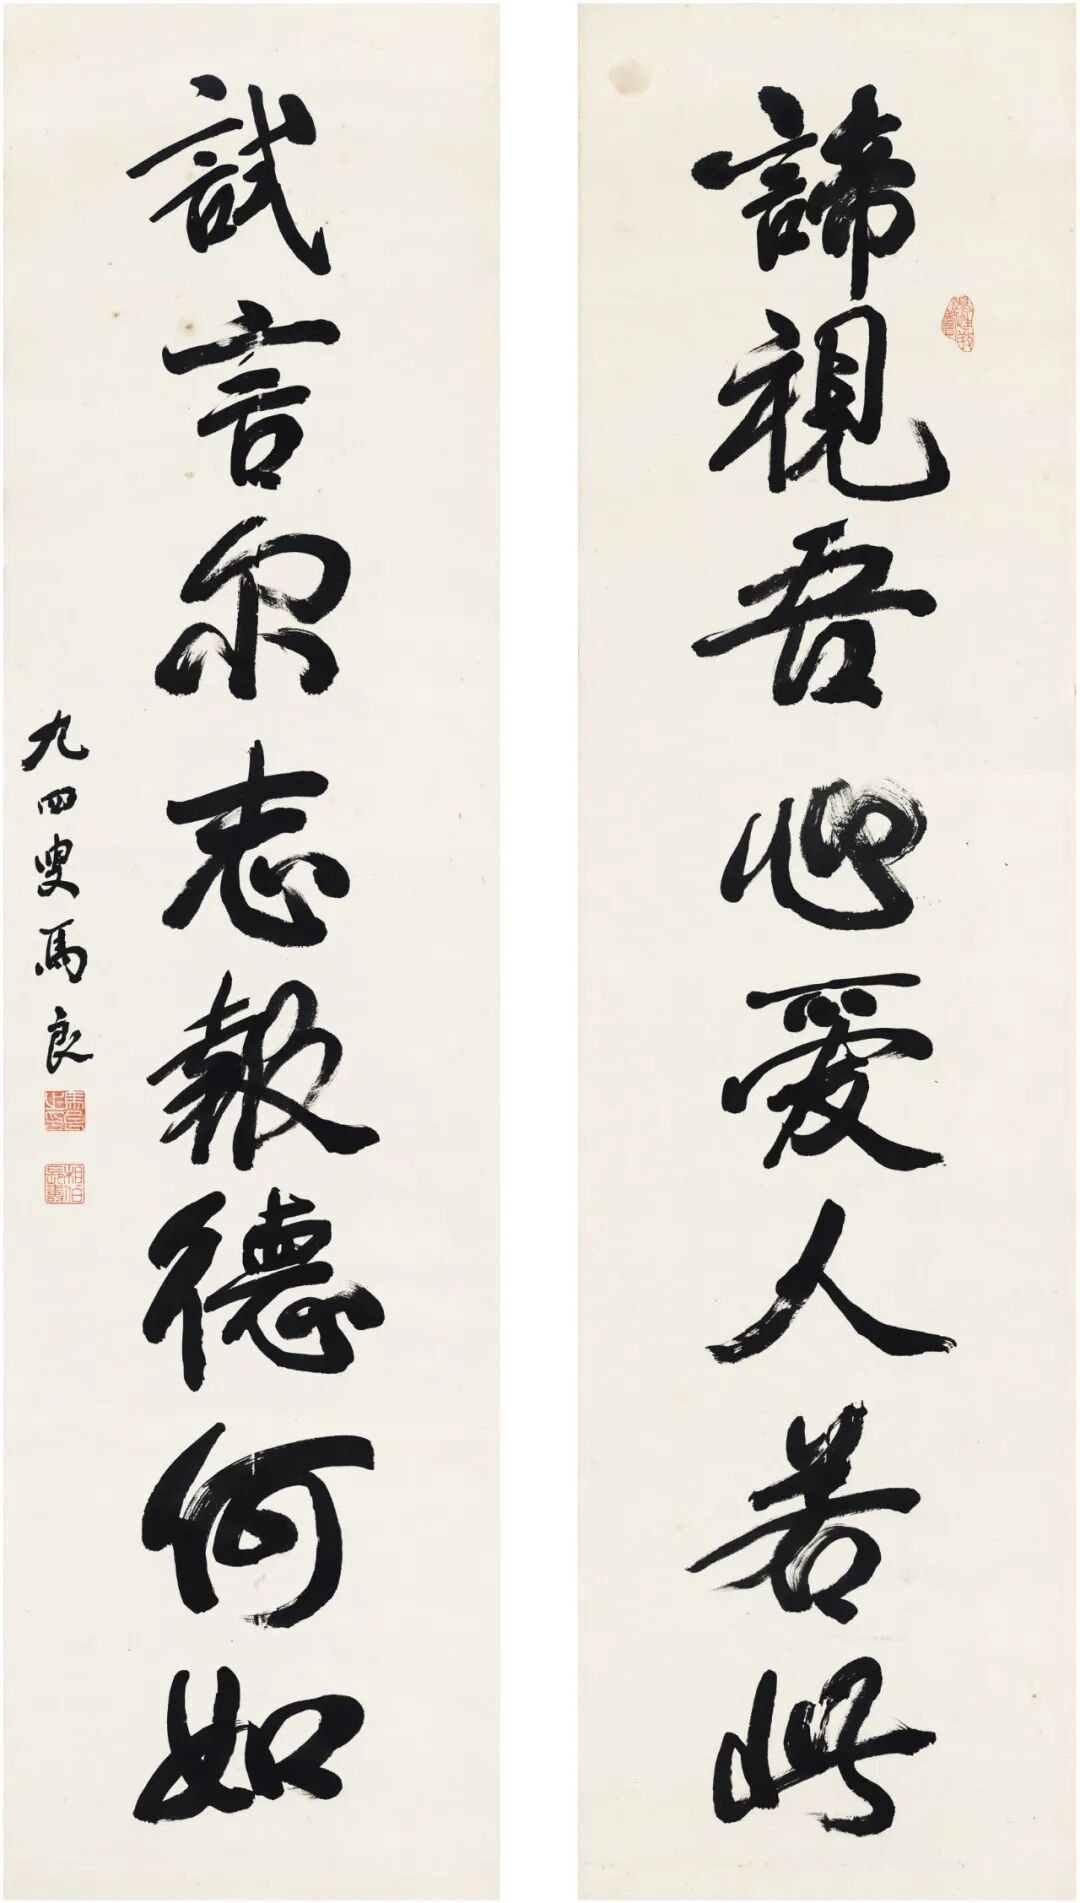 諦視吾心愛人若此
試言尔志報德何如
九四叟馬良